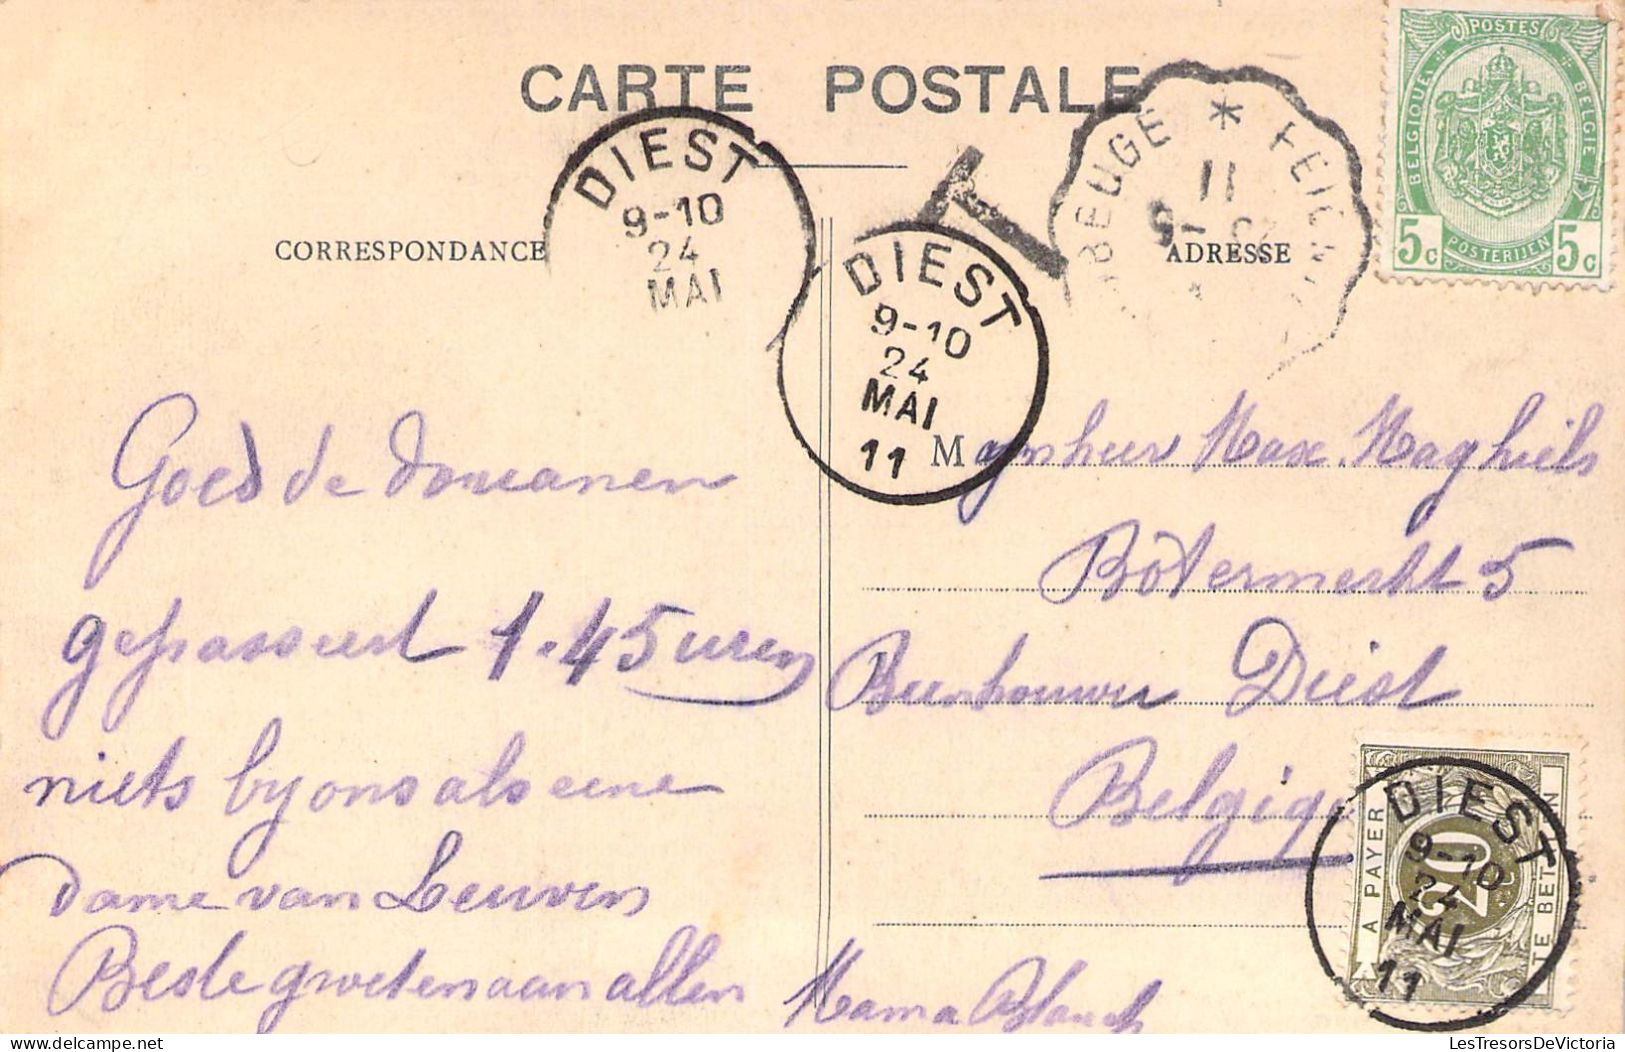 CARTE POSTALE
CORRESPONDANCE
ADRESSE
DIEST
9-10
24
MAI
DIEST
9-10
24
MAI
11
T
BEUGE * FEIGNI
11
POSTES
BELGIQUE BELGIE
5c POSTERIJEN 5c
Goed de douanen
gepasseerd 1.45 uren
niets by ons als eene
dame van Leuven
Beste groeten aan allen
Mama Blanch
Mynheer Max. Maghiels
Botermerkt 5
Beenhouwer Diest
Belgique
A PAYER
20
TE BETALEN
DIEST
9-10
24
MAI
11
LesTresorsDeVictoria